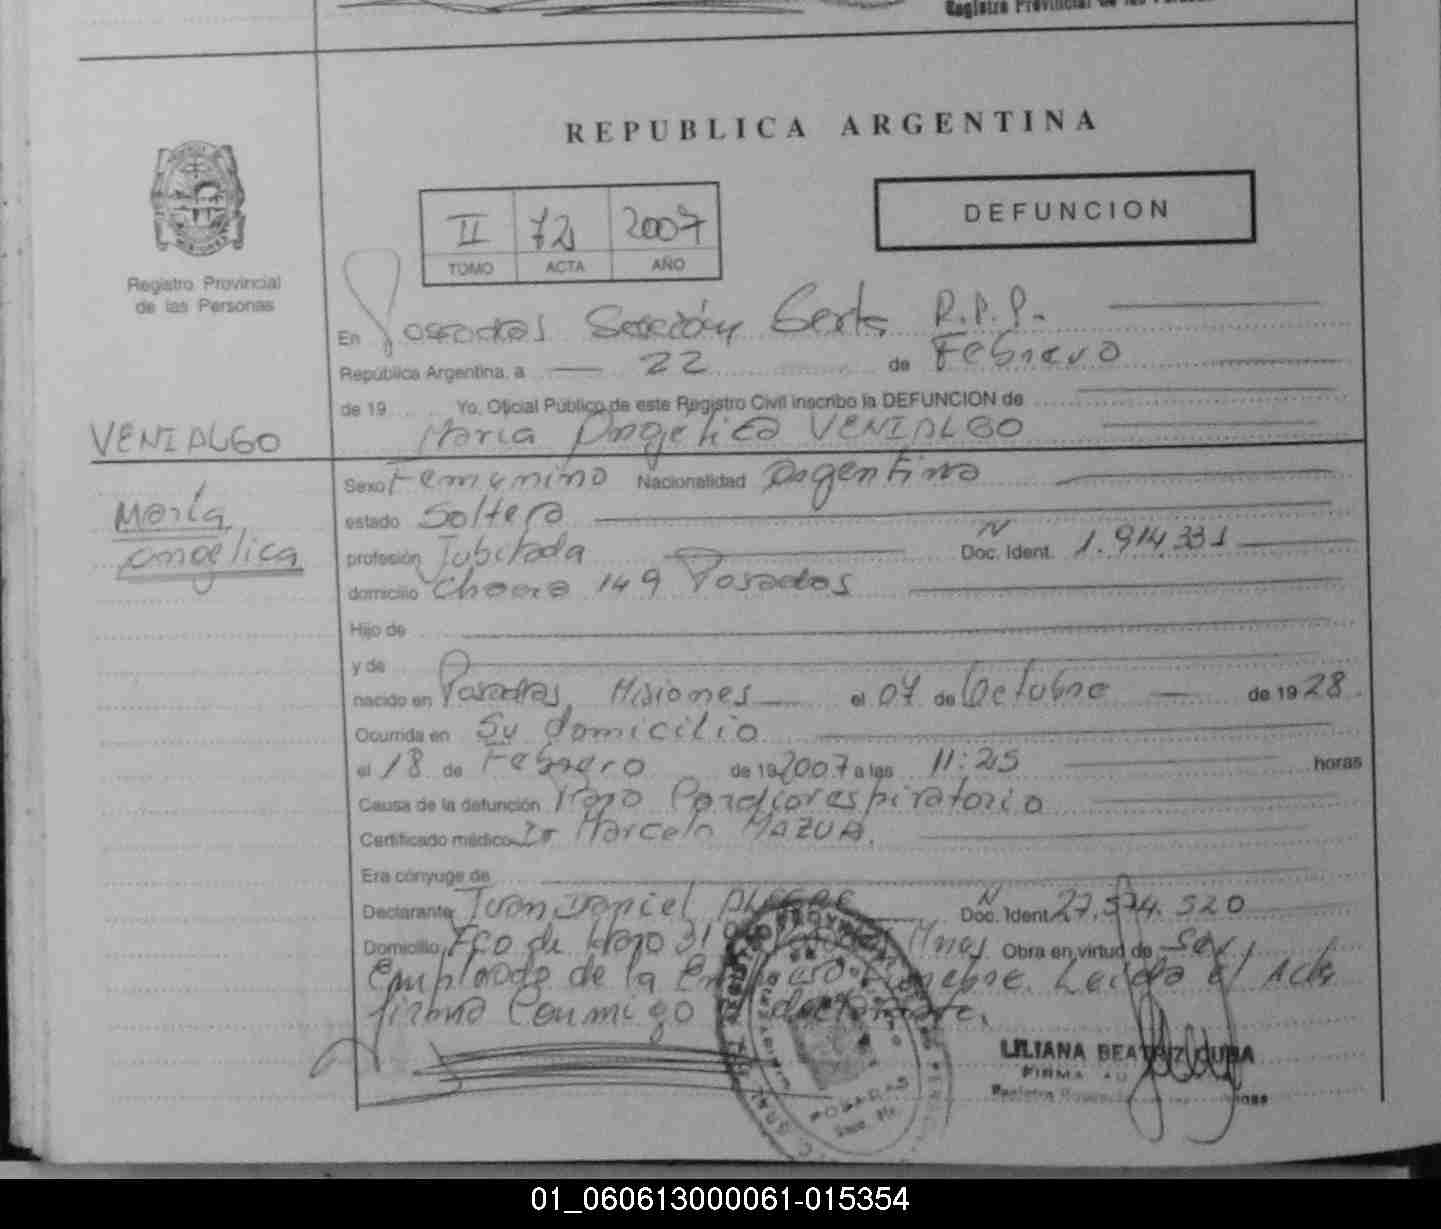 Registro Provincial de las Personas
REPUBLICA ARGENTINA
DEFUNCION
II 72 2007
TOMO ACTA AÑO
Registro Provincial
de las Personas
En Posadas Sección Sexta R.P.P.
República Argentina, a 22 de Febrero
de 19 Yo, Oficial Público de este Registro Civil inscribo la DEFUNCION de
VENIALGO
María Angelica VENIALGO
María
Angélica
Sexo Femynino Nacionalidad Argentina
estado Soltera
profesión Jubilada Doc. Ident. N 1.914.331
domicilio Chacra 149 Posadas
Hijo de
y de
nacido en Posadas, Misiones el 07 de Octubre de 19 28.
Ocurrida en Su domicilio
el 18 de Febrero de 19 2007 a las 11:25 horas
Causa de la defunción Paro Cardiorespiratorio
Certificado médico Dr Marcelo MAZUR.
Era cónyuge de
Declarante Juan Daniel Doc. Ident. N 27.574.520
Domicilio Fco de Haro 31 Mnes Obra en virtud de Ser
Empleado de la Empresa Funebre. Leída el Acta
firma Conmigo el declarante.
LILIANA BEATRIZ CUBA
FIRMA AU
POSADAS
01_060613000061-015354